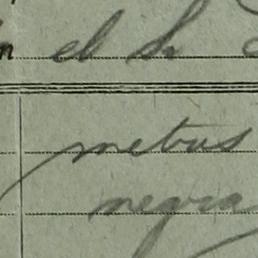 el h
metros
negra